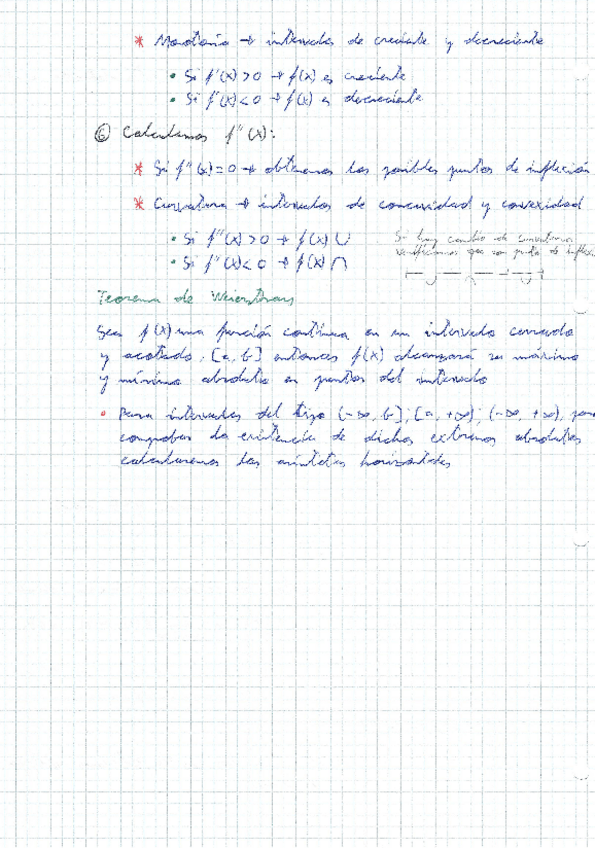 * Monotonía → intervalos de creciente y decreciente
• Si f'(x) > 0 → f(x) es creciente
• Si f'(x) < 0 → f(x) es decreciente
⑥ Calculamos f''(x):
* Si f''(x) = 0 → obtenemos los posibles puntos de inflección
* Curvatura → intervalos de concavidad y convexidad
• Si f''(x) > 0 → f(x) ∪
• Si f''(x) < 0 → f(x) ∩
Si hay cambio de curvatura
verificamos que son punto de inflexi
Teorema de Weierstrass
Sea f(x) una función continua en un intervalo cerrado
y acotado, [a, b] entonces f(x) alcanzará su máximo
y mínimo absoluto en puntos del intervalo
• Para intervalos del tipo (-∞, b]; [a, +∞); (-∞, +∞), para
comprobar la existencia de dichos extremos absolutos
calcularemos las asíntotas horizontales